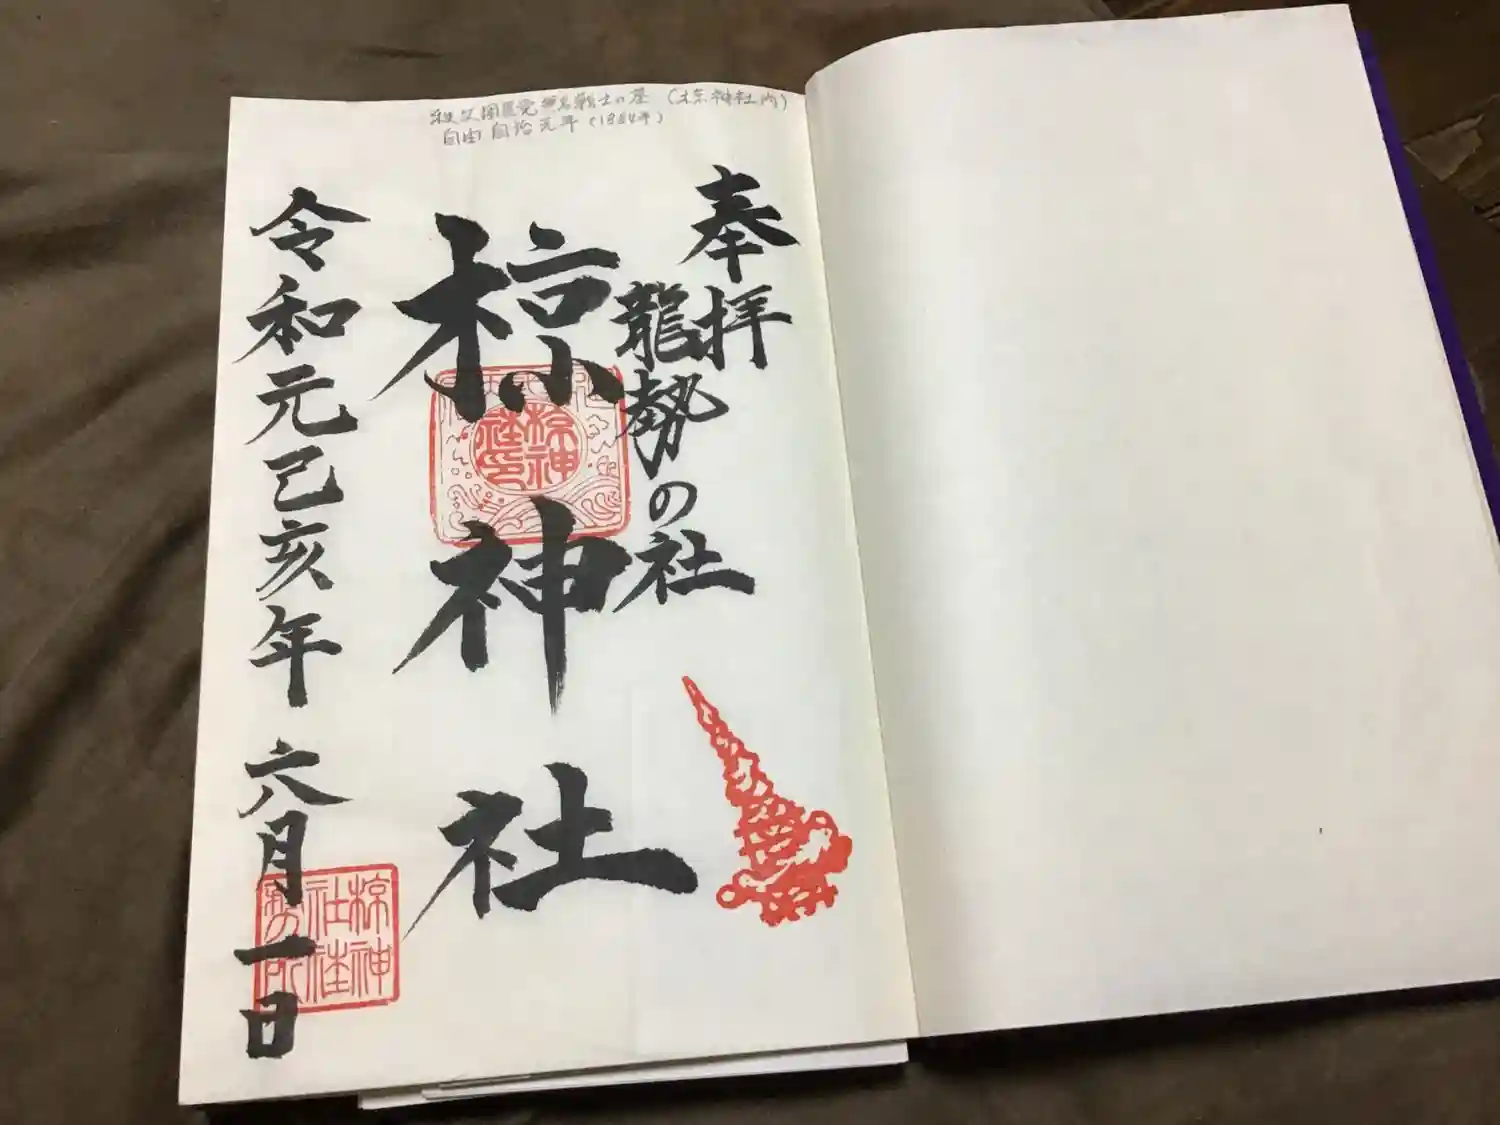 秩父困民党無名戦士の墓（椋神社内）
自由自治元年（1884年）
奉拝
龍勢の社
椋神社
令和元己亥年 六月一日
椋神
社印
椋神
社社